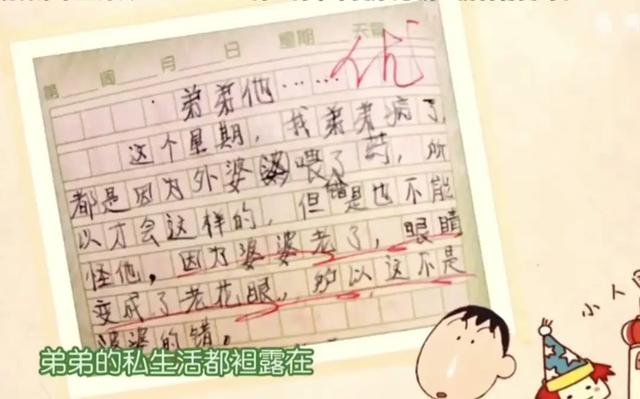 第 週 月 日 星期 天氣
优
弟弟他……
这个星期，我弟弟病了，
都是因为外婆婆喂了药，所
错
以才会这样的，但是也不能
怪他，因为婆婆老了，眼睛
变成了老花眼，所以这不是
婆的错。
弟弟的私生活都袒露在
小人